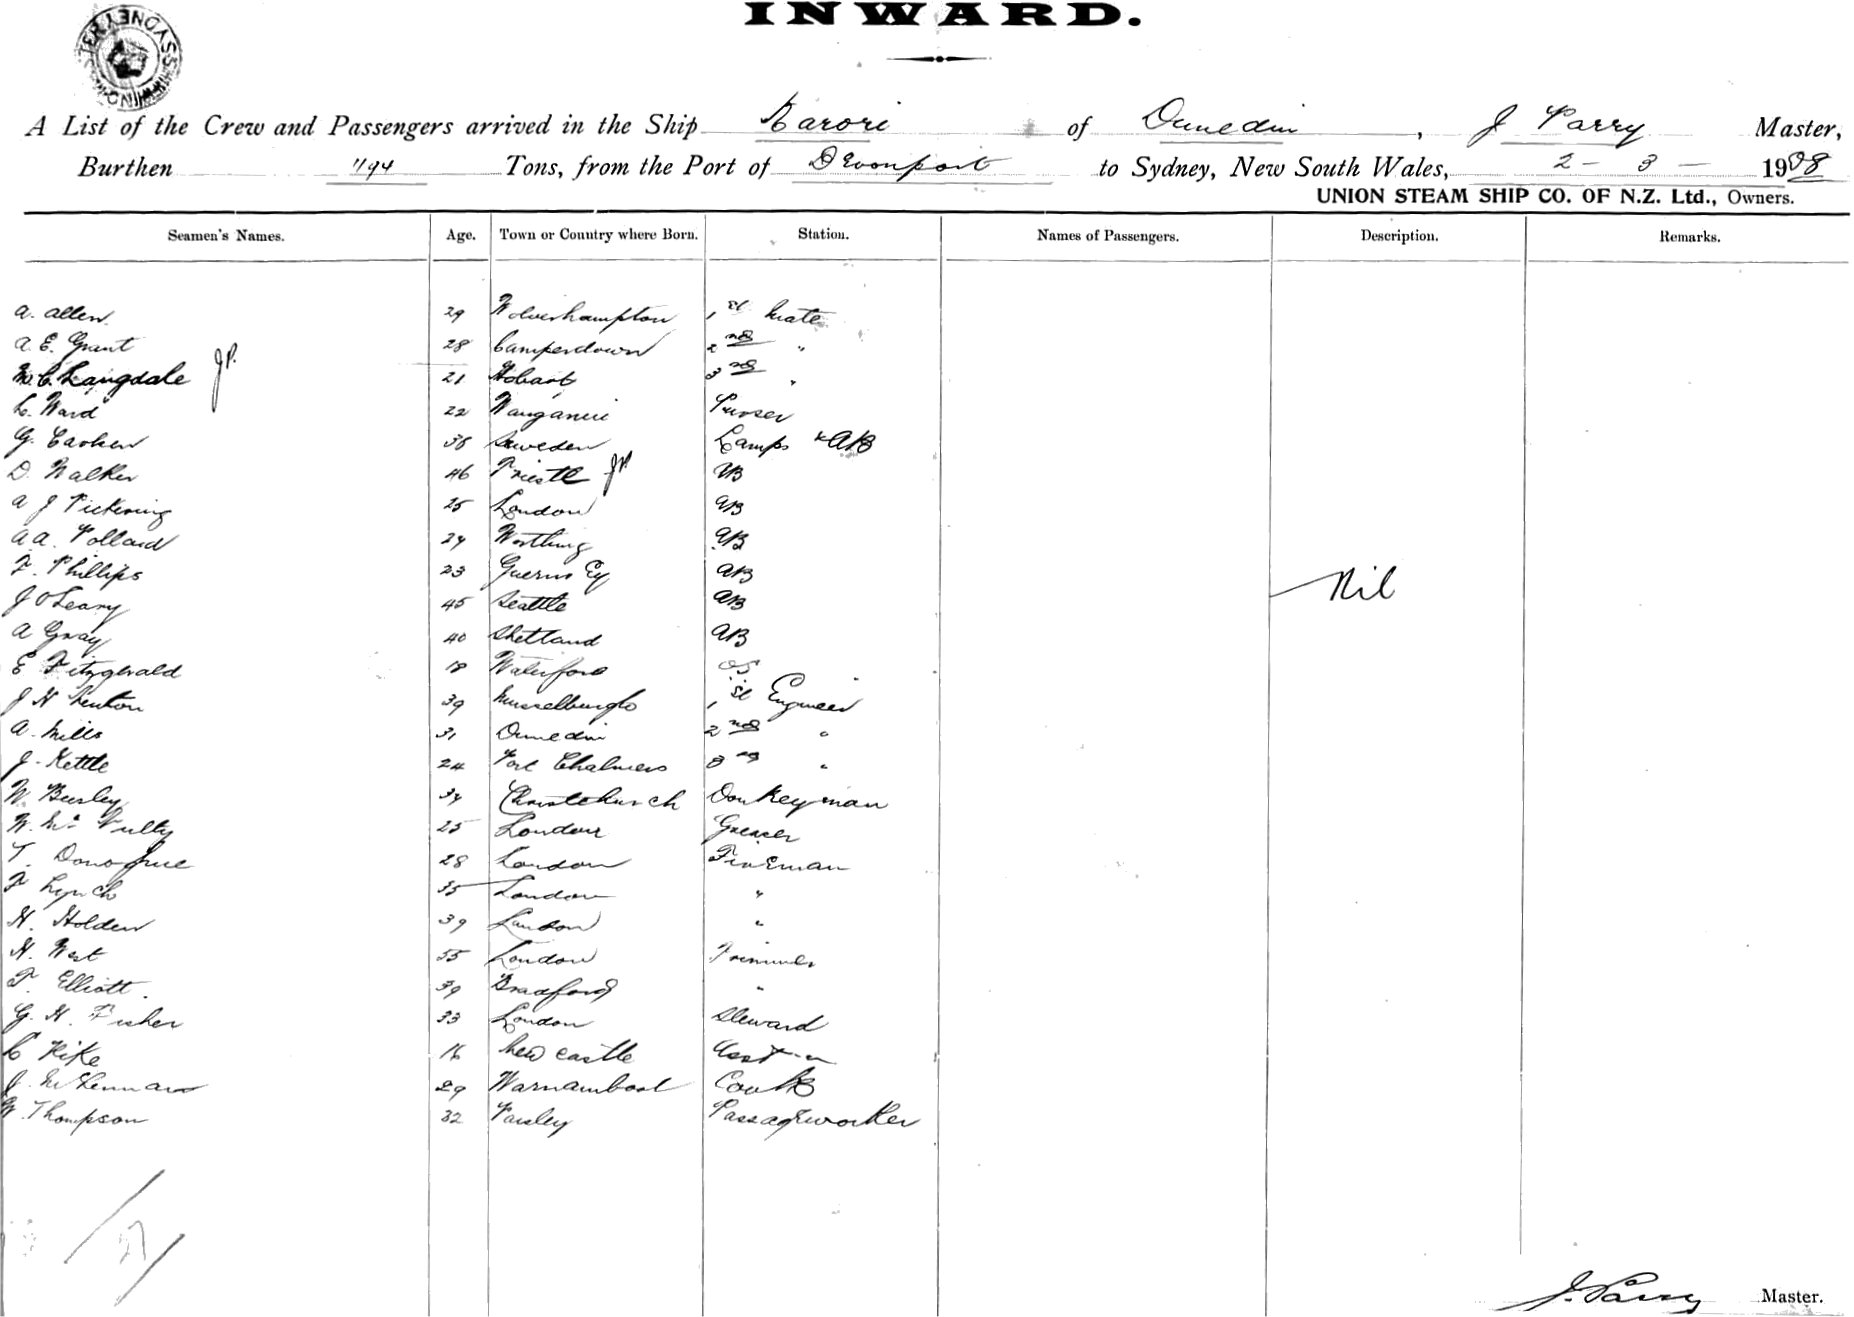 INWARD.
SYDNEY
A List of the Crew and Passengers arrived in the Ship Karori of Dunedin, J Parry Master,
Burthen 1194 Tons, from the Port of Devonport to Sydney, New South Wales, 2 - 3 - 1908
UNION STEAM SHIP CO. OF N.Z. Ltd., Owners.
Seamen's Names. Age. Town or Country where Born. Station. Names of Passengers. Description. Remarks.
A. Allen 29 Wolverhampton 1st Mate
A. E. Grant 28 Camperdown 2nd "
C. Langdale J.P. 21 Hobart 3rd "
L. Ward 22 Wanganui Purser
G. 38 Sweden Lamps & AB
D. Walker 46 Trieste JP AB
A J Pickering 25 London AB
A A. Pollard 24 Worthing AB
F. Phillips 23 Guerns Ey AB
Nil
J O'Leary 45 Seattle AB
A Gray 40 Shetland AB
E Fitzgerald 18 Waterford OS
J H 39 Musselburgh 1st Engineer
A. Mills 31 Dunedin 2nd "
J. Kettle 24 Port Chalmers 3rd "
W. 34 Christchurch Donkeyman
W. Mc Nulty 25 London Greaser
T. Donoghue 28 London Fireman
F Lynch 35 London "
H. Holden 39 London "
H. West 55 London Trimmer
T. Elliott. 39 Bradford "
G. H. Fisher 33 London Steward
C Pike 16 New castle Asst - "
J. McLennan 29 Warnambool Cook
W. Thompson 32 Paisley Passageworker
J. Parry Master.